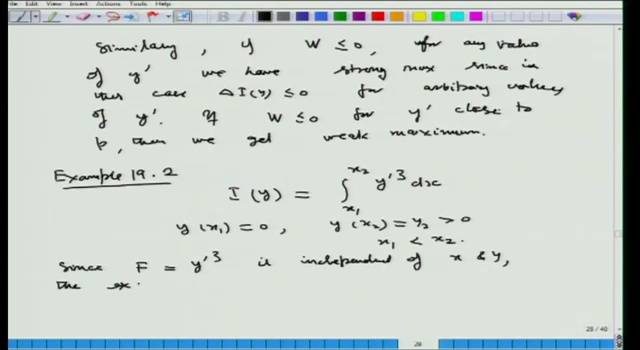 File Edit View Insert Actions Tools Help
Similary, if W ≤ 0, for any value
of y' we have strong max since in
this case ΔI(y) ≤ 0 for arbitrary values
of y'. If W ≤ 0 for y' close to
p, then we get weak maximum.
Example 19.2
I(y) = ∫_{x₁}^{x₂} y'³ dx
y(x₁) = 0, y(x₂) = y₂ > 0
x₁ < x₂.
Since F = y'³ is independent of x & y,
the ex.
28 / 40
28